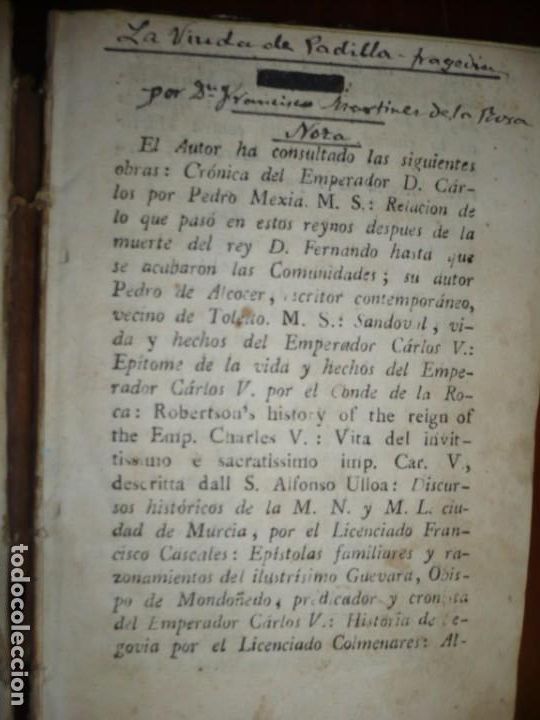 La Viuda de Padilla - tragedia
por Dn. Francisco Martinez de la Rosa
Nota
El Autor ha consultado las siguientes
obras: Crónica del Emperador D. Cár-
los por Pedro Mexia. M. S.: Relacion de
lo que pasó en estos reynos despues de la
muerte del rey D. Fernando hasta que
se acabaron las Comunidades; su autor
Pedro de Alcocer, escritor contemporáneo,
vecino de Toledo. M. S.: Sandoval, vi-
da y hechos del Emperador Cárlos V.:
Epítome de la vida y hechos del Empe-
rador Cárlos V. por el Conde de la Ro-
ca: Robertson's history of the reign of
the Emp. Charles V.: Vita del invit-
tissimo e sacratissimo imp. Car. V,
descritta dall S. Alfonso Ulloa: Discur-
sos históricos de la M. N. y M. L. ciu-
dad de Murcia, por el Licenciado Fran-
cisco Cascales: Epístolas familiares y ra-
zonamientos del ilustrísimo Guevara, Obis-
po de Mondoñedo, predicador y cronista
del Emperador Cárlos V.: Historia de Se-
govia por el Licenciado Colmenares: Al-
todocoleccion.net